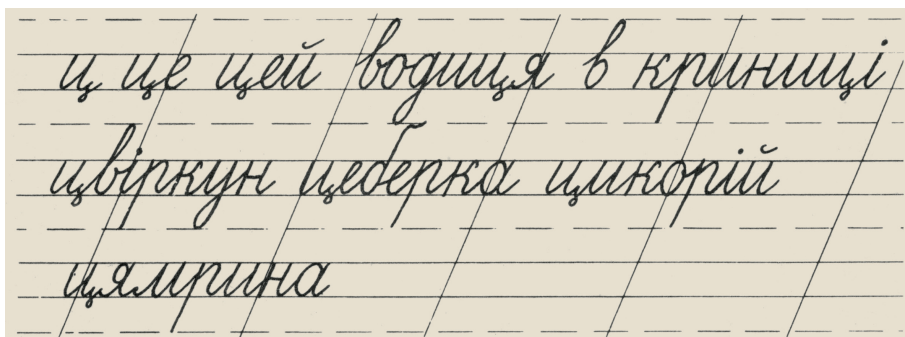 ц це цей водиця в криниці
цвіркун цеберка цикорій
цямрина